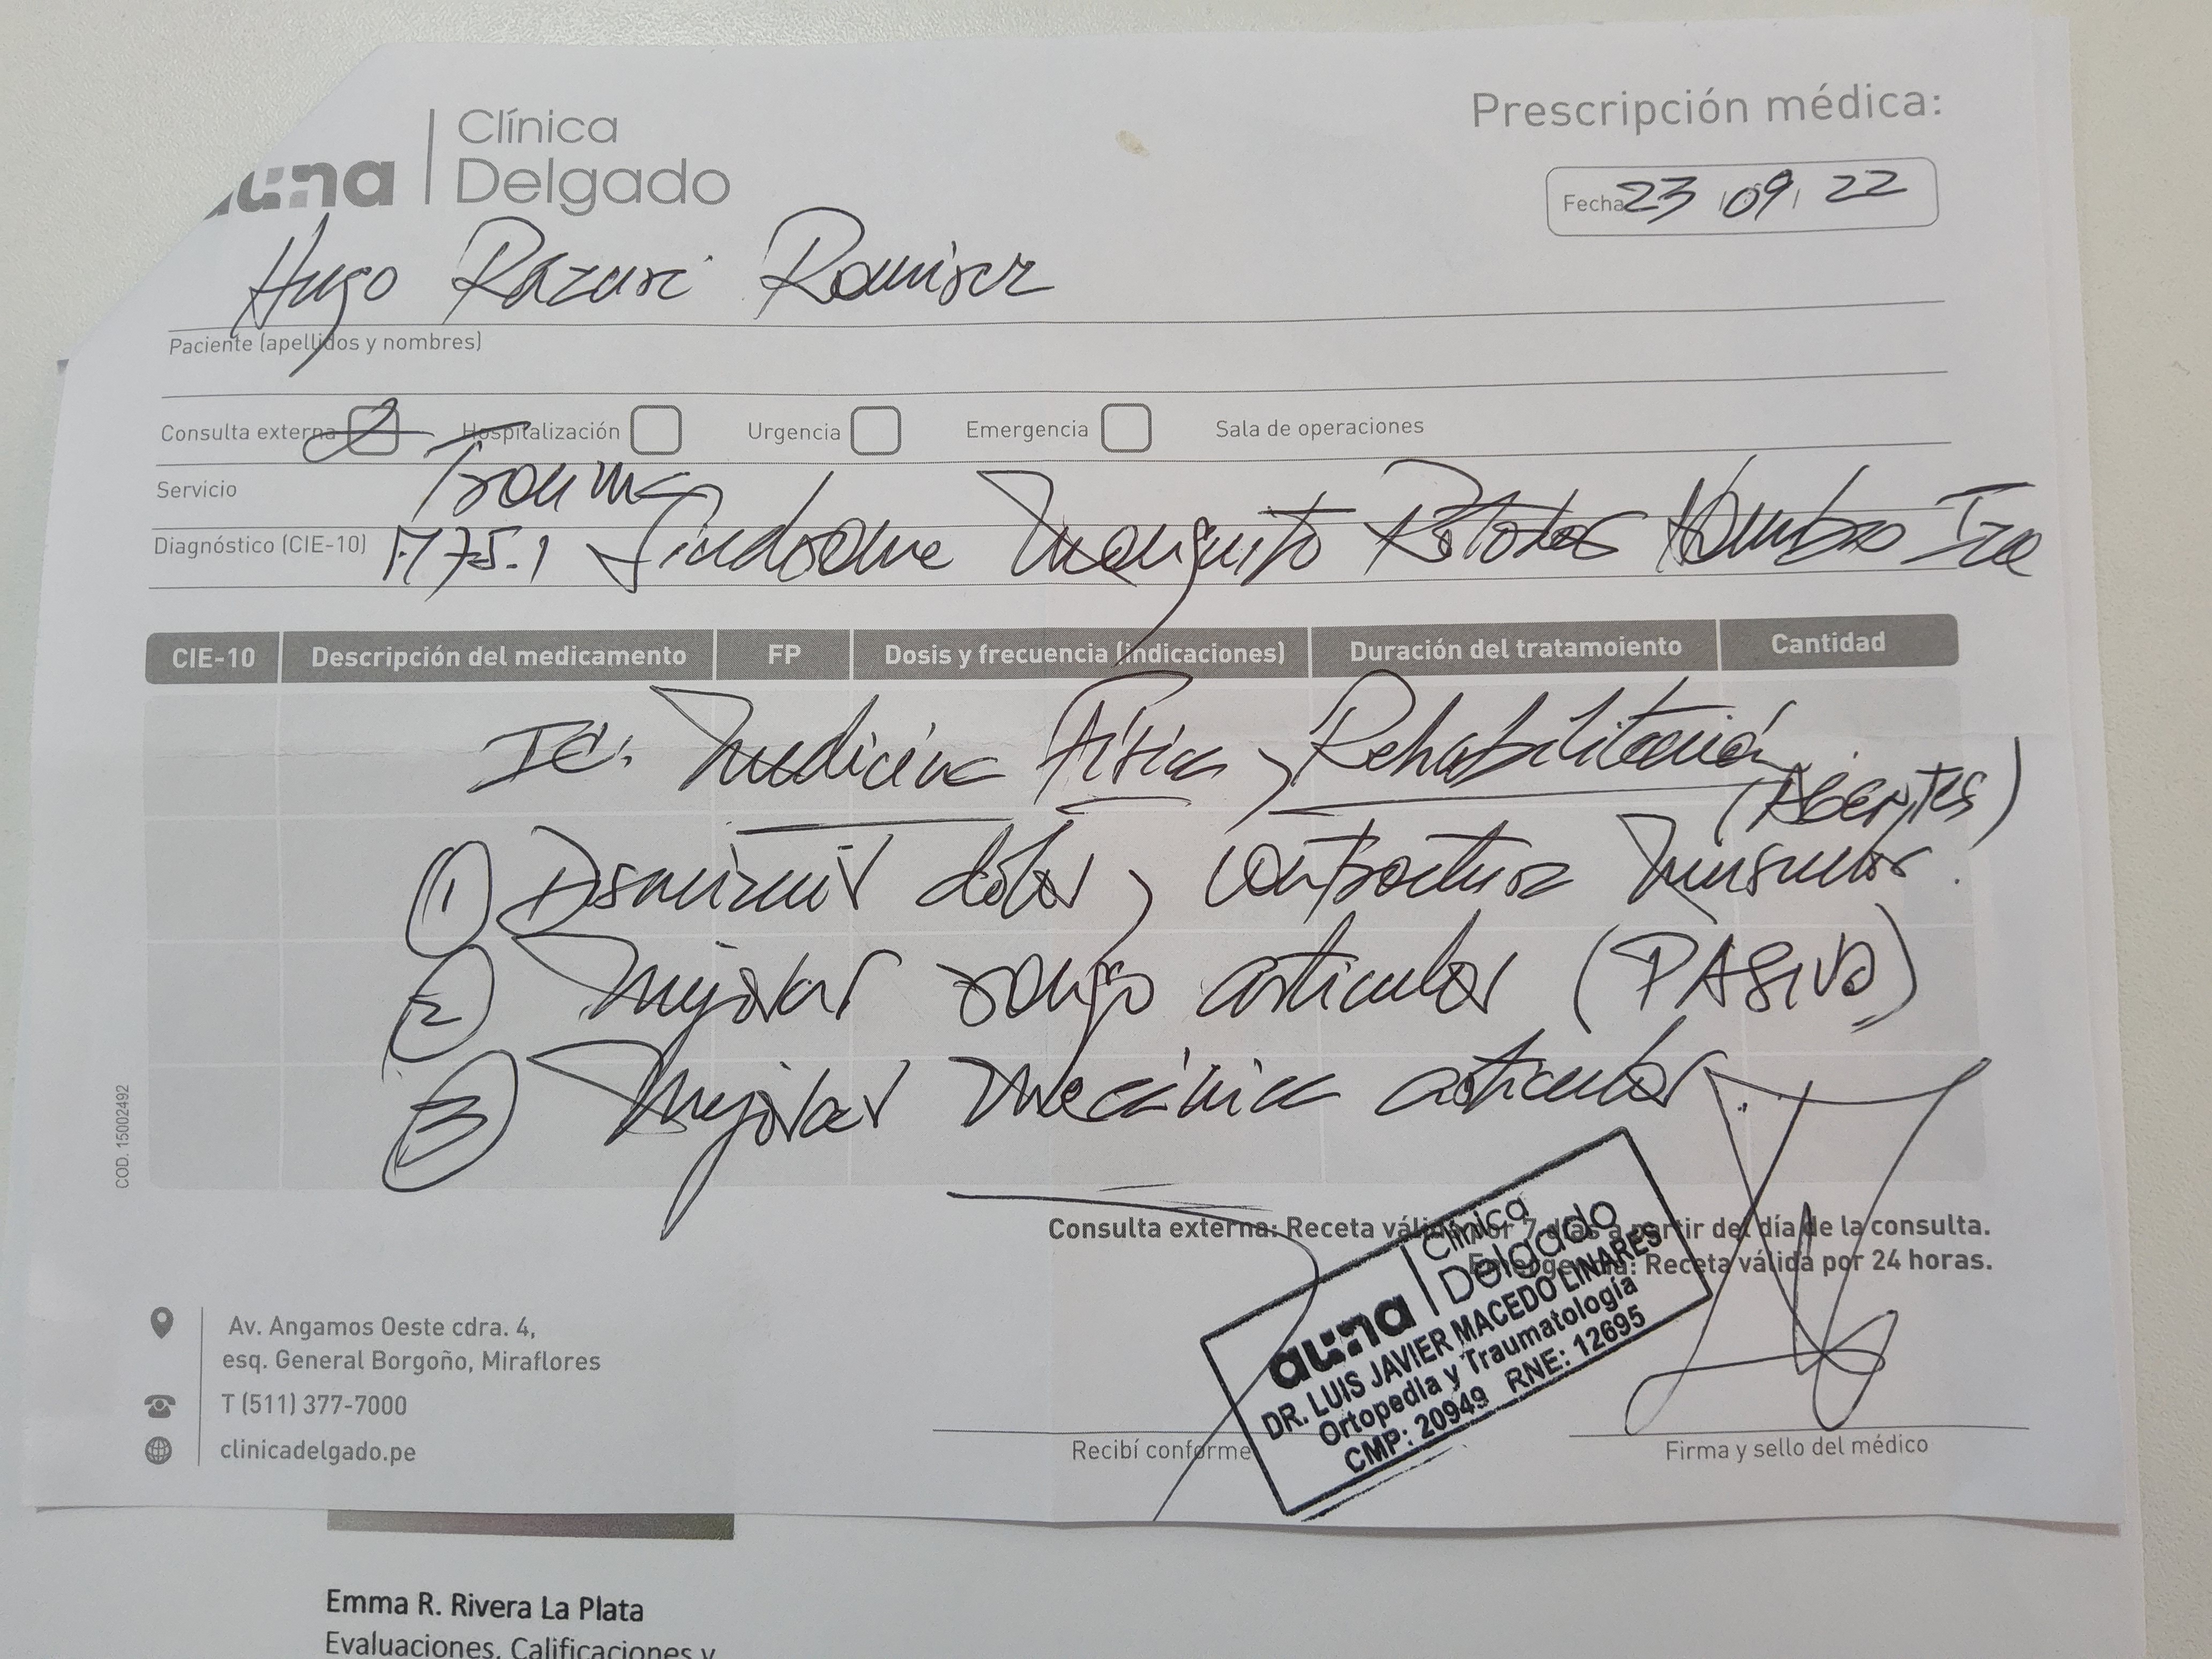 auna | Clínica Delgado
Prescripción médica:
Fecha 23 / 09 / 22
Hugo Razuri Ramirez
Paciente (apellidos y nombres)
Consulta externa Hospitalización Urgencia Emergencia Sala de operaciones
Servicio Trauma
Diagnóstico (CIE-10) M75.1 Sindrome Manguito Rotador Hombro Izq
CIE-10 Descripción del medicamento FP Dosis y frecuencia (indicaciones) Duración del tratamoiento Cantidad
Ic: Medicina Física y Rehabilitación
① Disminuir dolor y contractura muscular.
② Mejorar rango articular (PASIVO)
③ Mejorar mecánica articular
Consulta externa: Receta válida por 7 días a partir del día de la consulta.
Emergencia: Receta válida por 24 horas.
auna | Clínica Delgado
DR. LUIS JAVIER MACEDO LINARES
Ortopedia y Traumatología
CMP: 20949 RNE: 12695
Av. Angamos Oeste cdra. 4,
esq. General Borgoño, Miraflores
T (511) 377-7000
clinicadelgado.pe
Recibí conforme
Firma y sello del médico
COD. 15002492
Emma R. Rivera La Plata
Evaluaciones, Calificaciones y